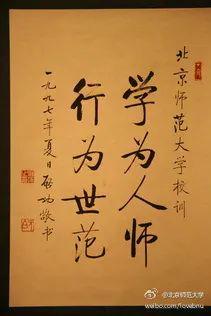 北京师范大学校训
学为人师
行为世范
一九九七年夏日启功敬书
@北京师范大学
weibo.com/lovebnu